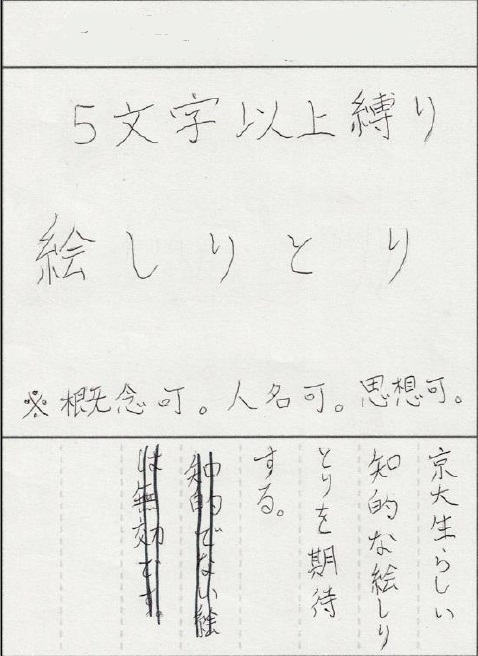 5文字以上縛り
絵しりとり
※概念可。人名可。思想可。
京大生らしい
知的な絵しり
とりを期待
する。
知的でない絵
は無効です。